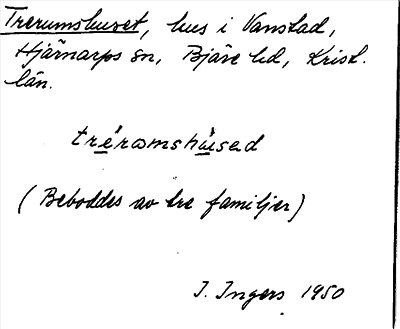 Trerumshuset, hus i Vanstad,
Hjärnarps sn, Bjäre hd, Krist.
län.
tréromshùsad
(Beboddes av tre familjer)
I. Ingers 1950